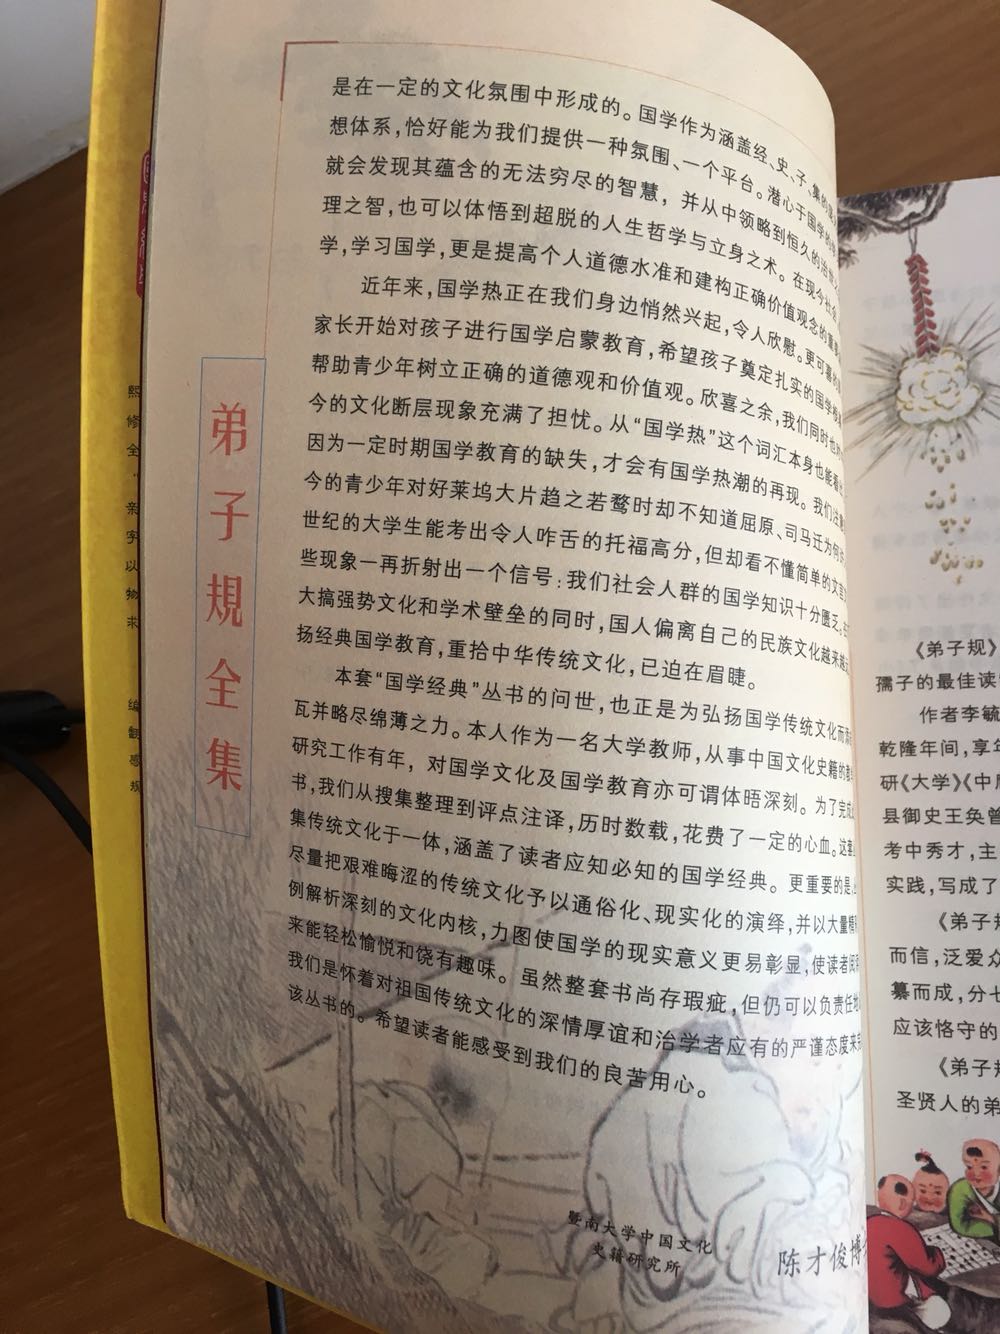 是在一定的文化氛围中形成的。国学作为涵盖经、史、子、集的
想体系，恰好能为我们提供一种氛围、一个平台。潜心于国学的
就会发现其蕴含的无法穷尽的智慧，并从中领略到恒久的治
理之智，也可以体悟到超脱的人生哲学与立身之术。在现今社会
学，学习国学，更是提高个人道德水准和建构正确价值观念的重要
近年来，国学热正在我们身边悄然兴起，令人欣慰。更可喜的
家长开始对孩子进行国学启蒙教育，希望孩子奠定扎实的国学
帮助青少年树立正确的道德观和价值观。欣喜之余，我们同时也
今的文化断层现象充满了担忧。从“国学热”这个词汇本身也能看
因为一定时期国学教育的缺失，才会有国学热潮的再现。我们注意
今的青少年对好莱坞大片趋之若鹜时却不知道屈原、司马迁为何
世纪的大学生能考出令人咋舌的托福高分，但却看不懂简单的文言
些现象一再折射出一个信号：我们社会人群的国学知识十分匮乏。在
大搞强势文化和学术壁垒的同时，国人偏离自己的民族文化越来越
扬经典国学教育，重拾中华传统文化，已迫在眉睫。
本套“国学经典”丛书的问世，也正是为弘扬国学传统文化而
瓦并略尽绵薄之力。本人作为一名大学教师，从事中国文化史籍的教
研究工作有年，对国学文化及国学教育亦可谓体晤深刻。为了完成
书，我们从搜集整理到评点注译，历时数载，花费了一定的心血。这套
集传统文化于一体，涵盖了读者应知必知的国学经典。更重要的是
尽量把艰难晦涩的传统文化予以通俗化、现实化的演绎，并以大量精
例解析深刻的文化内核，力图使国学的现实意义更易彰显，使读者阅
来能轻松愉悦和饶有趣味。虽然整套书尚存瑕疵，但仍可以负责任地
我们是怀着对祖国传统文化的深情厚谊和治学者应有的严谨态度来
该丛书的。希望读者能感受到我们的良苦用心。
暨南大学中国文化
史籍研究所
陈才俊博
弟子規全集
《弟子规》
孺子的最佳读
作者李毓
乾隆年间，享年
研《大学》《中
县御史王奂曾
考中秀才，主
实践，写成了
《弟子规
而信，泛爱众
纂而成，分七
应该恪守的
《弟子规
圣贤人的弟